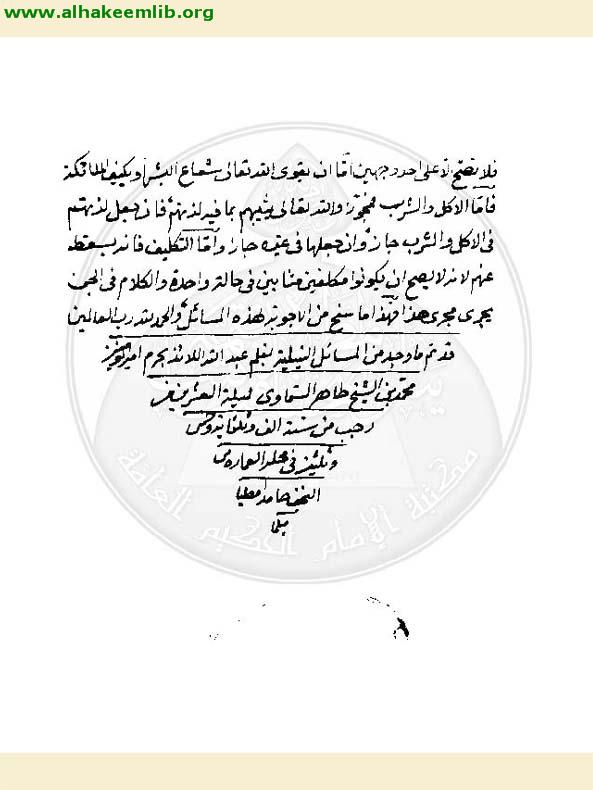 www.alhakeemlib.org
فلا تصح الا على احد وجهين اما ان يقوى الله تعالى شعاع البشر او يكثف الملائكة
فاما الاكل والشرب فمجوز والله تعالى يثيبهم بما فيه لذتهم فان جعل لذتهم
في الاكل والشرب جاز وان جعلها في غيره جاز واما التكليف فانه يسقط
عنهم لانه لا يصح ان يكونوا مكلفين مثابين في حالة واحدة والكلام في الجن
يجرى مجرى هذا فهذا ما سنح من الاجوبة لهذه المسائل والحمد لله رب العالمين
قد تم ما وجد من المسائل بقلم عبد الله اللائذ بحرم امير
محمد بن الشيخ طاهر السماوى ليلة العشرين من
رجب من سنة الف وثلثمائة وخمس
وثلثين في محلة العمارة من
النجف حامدا مصليا
مسلما
مكتبة الإمام الحكيم العامة